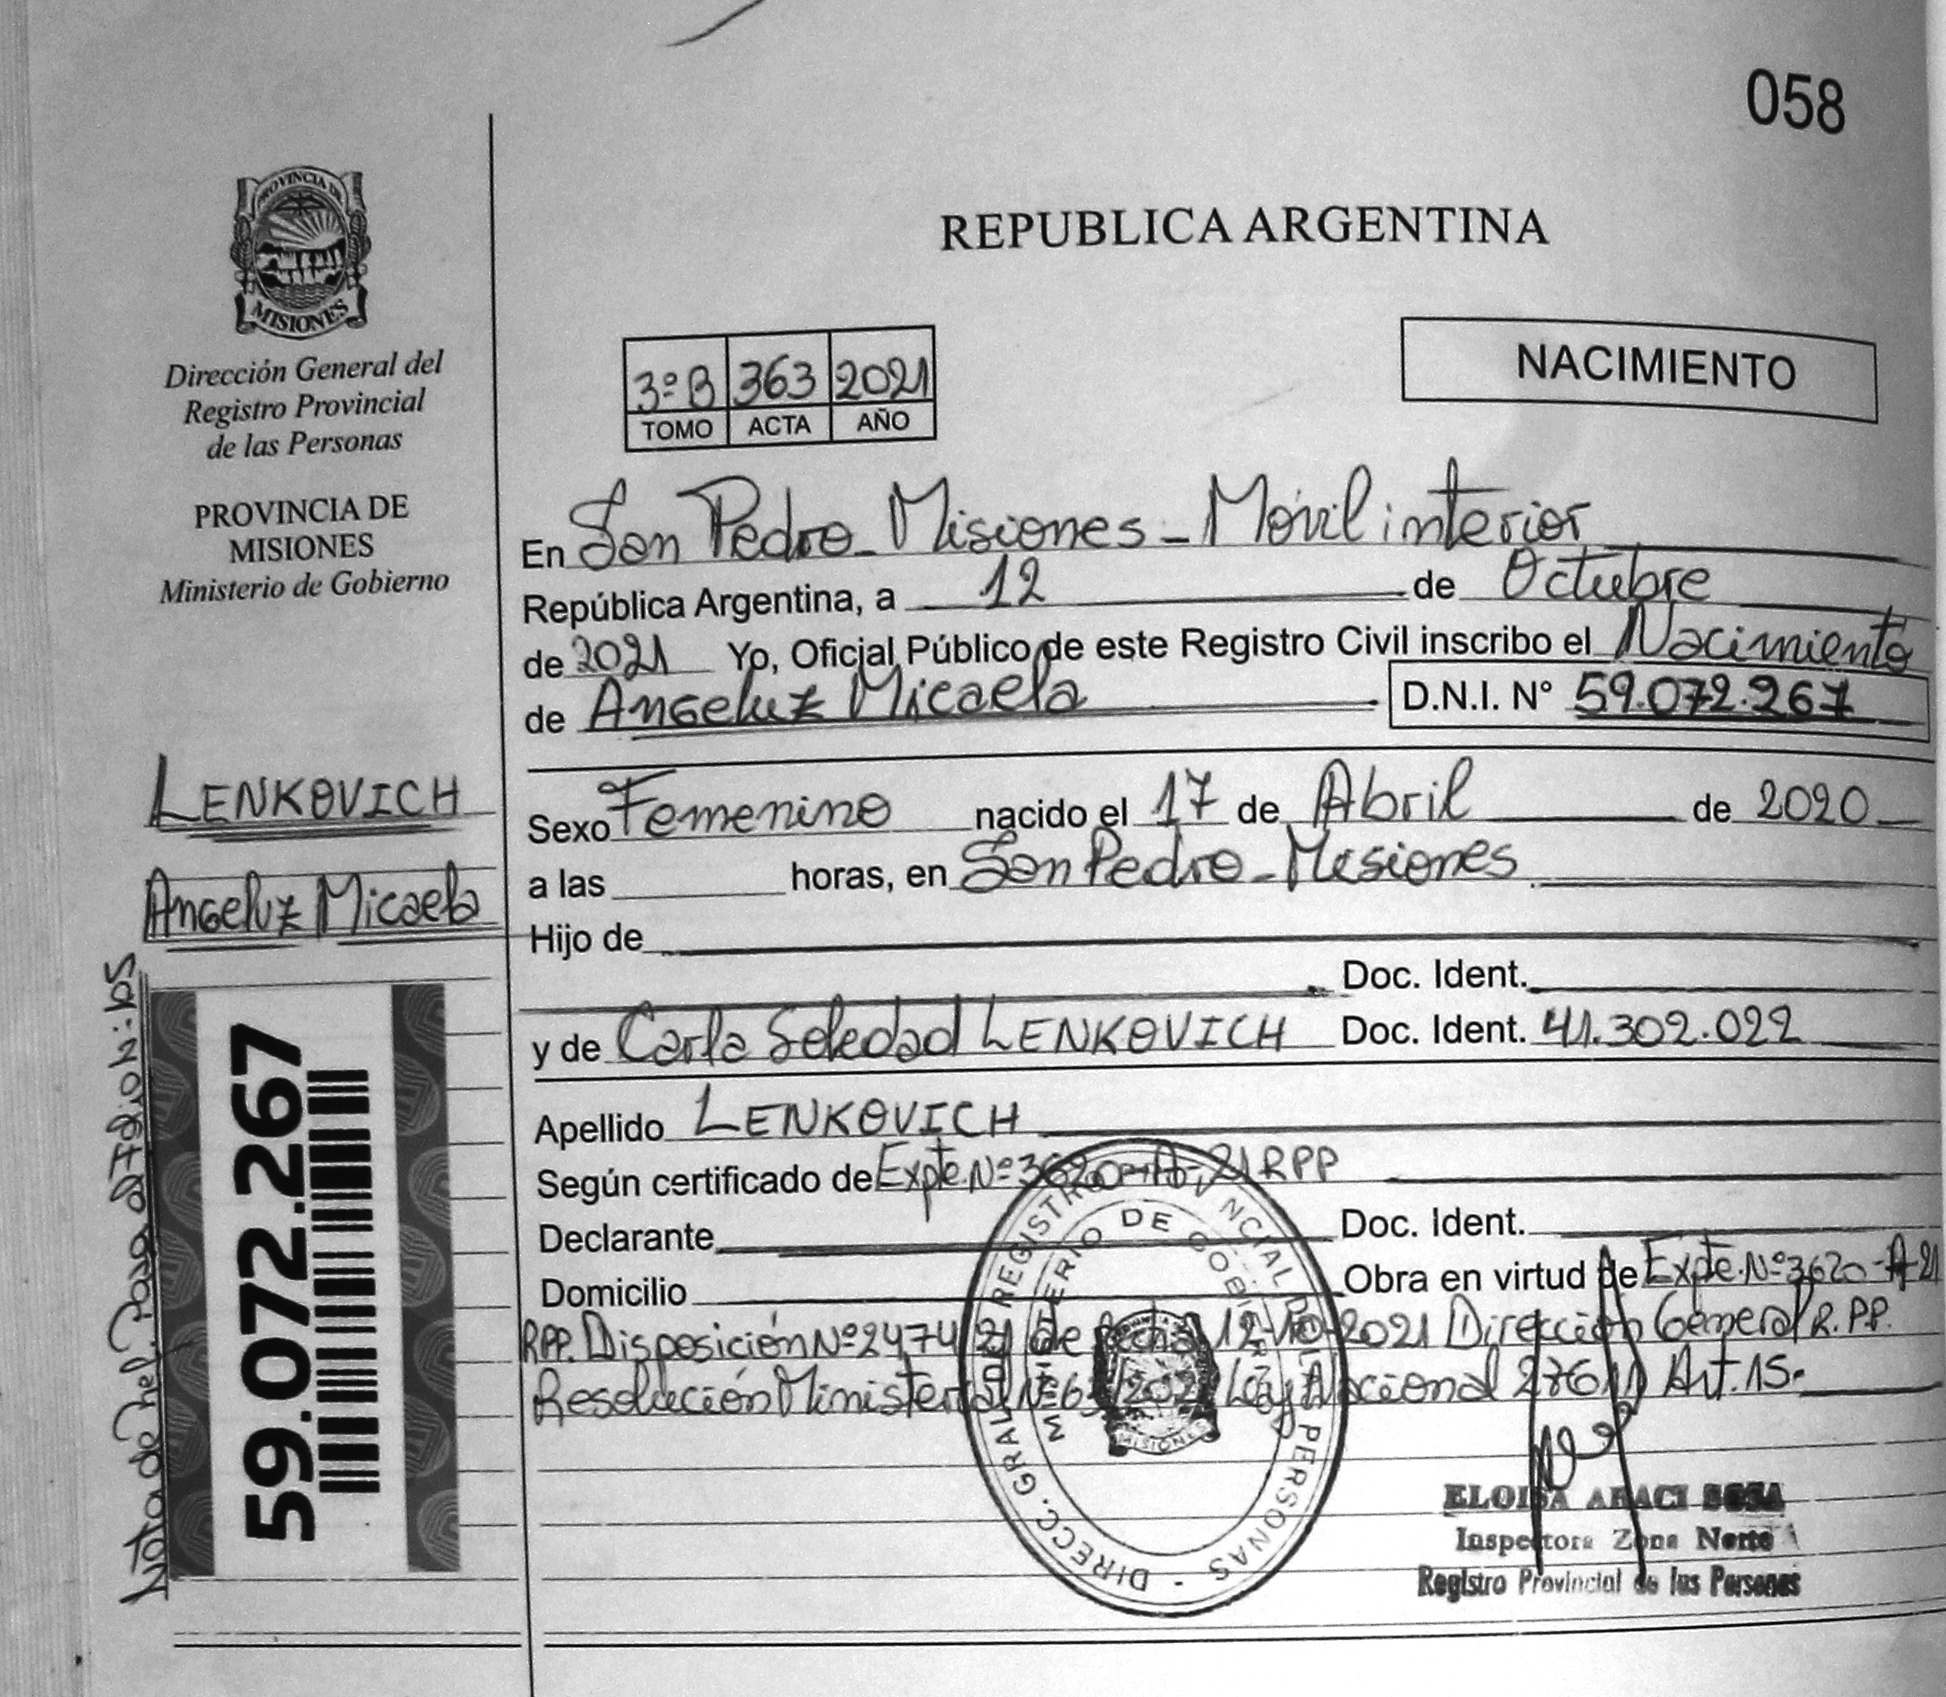 058
PROVINCIA DE
MISIONES
Dirección General del
Registro Provincial
de las Personas
PROVINCIA DE
MISIONES
Ministerio de Gobierno
REPUBLICA ARGENTINA
3º B 363 2021
TOMO ACTA AÑO
NACIMIENTO
En San Pedro - Misiones - Móvil interior
República Argentina, a 12 de Octubre
de 2021 Yo, Oficial Público de este Registro Civil inscribo el Nacimiento
de Angeluz Micaela D.N.I. N° 59.072.267
Sexo Femenino nacido el 17 de Abril de 2020
a las horas, en San Pedro - Misiones
Hijo de
Doc. Ident.
y de Carla Soledad LENKOVICH Doc. Ident. 41.302.022
Apellido LENKOVICH
Según certificado de Expte. Nº 3620-A-21 RPP
Declarante Doc. Ident.
Domicilio Obra en virtud de Expte. Nº 3620-A-21
RPP. Disposición Nº 2474/21 de fecha 12-10-2021 Dirección General R.P.P.
Resolución Ministerial Nº 2021 Ley Nacional 27611 Art. 15-
LENKOVICH
Angeluz Micaela
59.072.267
Nota de Ref. Pasa al Folio Nº
DIRECC. GRAL. DEL REGISTRO PROVINCIAL DE LAS PERSONAS -
MINISTERIO DE GOBIERNO
MISIONES
ELOISA ARACI SOSA
Inspectora Zona Norte
Registro Provincial de las Personas